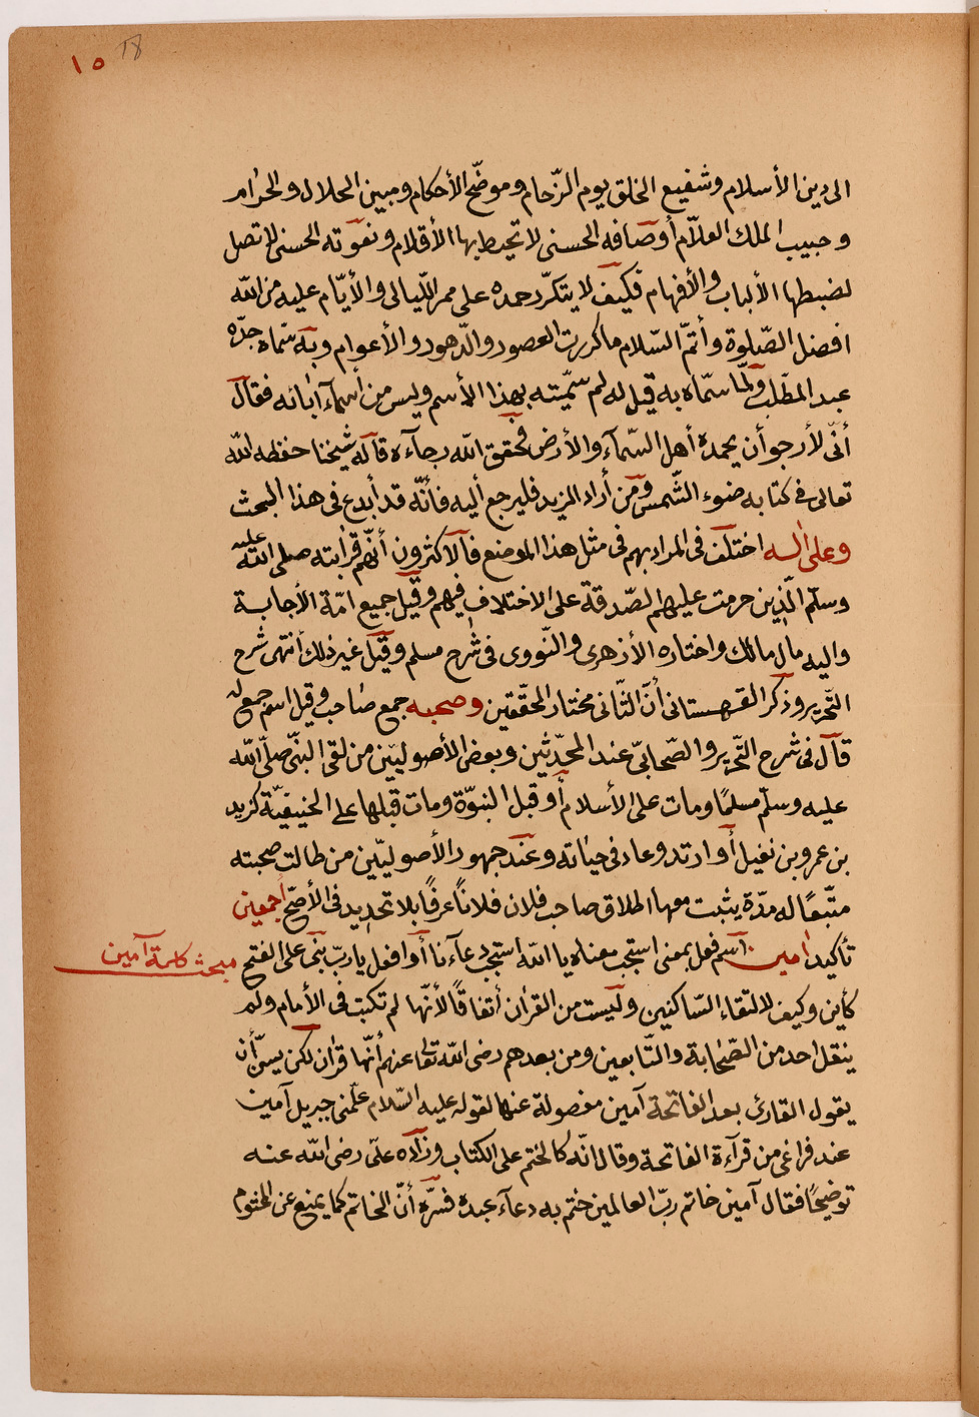 ١٥ 18
الى دين الأسلام وشفيع الخلق يوم الزّحام وموضّح الأحكام ومبين الحلال والحرام
وحبيب الملك العلّام أوصافه الحسنى لا تحيط بها الأقلام ونعوته الحسنى لا تصل
لضبطها الألباب والأفهام فكيف لا يتكرّر حمده على ممر اللّيالى والأيّام عليه من الله
افضل الصّلوة وأتمّ السّلام ما كررت العصور والدّهور والأعوام وبه سمّاه جدّه
عبد المطّلب ولمّا سمّاه به قيل له لم سمّيته بهذا الأسم وليس من أسمآء آبائه فقال
أنّى لأرجو أن يحمده أهل السّمآء والأرض فحقق الله رجآءه قاله شيخنا حفظه الله
تعالى فى كتابه ضوء الشّمس ومن أراد المزيد فليرجع أليه فأنّه قد أبدع فى هذا البحث
وعلى اله اختلف فى المراد بهم فى مثل هذا الموضع فالاكثرون أنّهم قرابته صلى الله عليه
وسلّم الّذين حرمت عليهم الصّدقة على الاختلاف فيهم وقيل جميع امّة الأجابة
واليه مال مالك واختاره الأزهرى والنّووى فى شرح مسلم وقيل غير ذلك أنتهى شرح
التّحرير وذكر القهستانى أنّ الثّانى مختار المحقّقين وصحبه جمع صاحب وقيل اسم جمع له
قال فى شرح التّحرير والصّحابىّ عند المحدّثين وبعض الأصوليّين من لقى النبّى صلّى الله
عليه وسلّم مسلمًا ومات على الأسلام أو قبل النبوّة ومات قبلها على الحنيفيّة كزيد
بن عمرو بن نفيل أو ارتد وعاد فى حياته وعند جمهور الأصوليّين من طالت صحبته
متّبعًا له مدّة يثبت معها اطلاق صاحب فلان فلانًا عرفًا بلا تحديد فى الأصحّ أجمعين
تأكيد امين اسم فعل بمعنى استجب معناه يا الله استجب دعآءنا أو افعل يا ربّ بنى على الفتح
مبحث كلمة آمين
كأين وكيف لالتقاء السّاكنين وليست من القران أتفاقًا لأنّها لم تكتب فى الأمام ولم
ينقل احد من الصّحابة والتّابعين ومن بعدهم رضى الله تعالى عنهم أنّها قران لكن يسنّ أن
يقول القارئ بعد الفاتحة آمين مفصولة عنها لقوله عليه السّلام علّمنى جبريل آمين
عند فراغى من قرآءة الفاتحة وقال انّه كالختم على الكتاب وزاده علىّ رضى الله عنه
توضيحًا فقال آمين خاتم ربّ العالمين ختم به دعآء عبده فسّره أنّ الخاتم كما يمنع عن المختوم